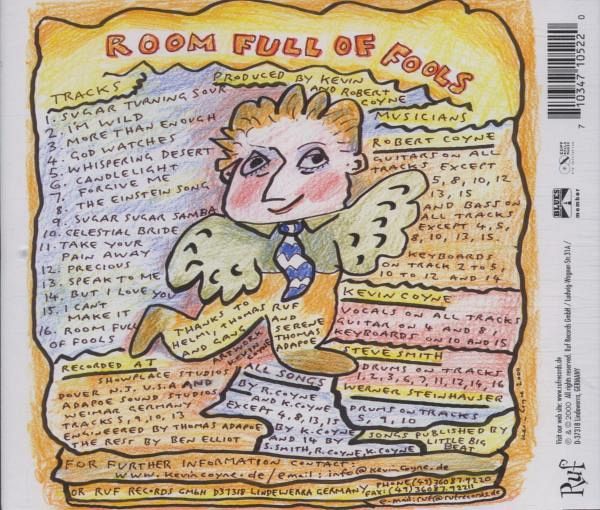 ROOM FULL OF FOOLS
TRACKS
1. SUGAR TURNING SOUR
2. I'M WILD
3. MORE THAN ENOUGH
4. GOD WATCHES
5. WHISPERING DESERT
6. CANDLELIGHT
7. FORGIVE ME
8. THE EINSTEIN SONG
9. SUGAR SUGAR SAMBA
10. CELESTIAL BRIDE
11. TAKE YOUR
PAIN AWAY
12. PRECIOUS
13. SPEAK TO ME
14. BUT I LOVE YOU
15. I CAN'T
MAKE IT
16. ROOM FULL
OF FOOLS
PRODUCED BY KEVIN
AND ROBERT
COYNE
MUSICIANS
ROBERT COYNE
GUITARS ON ALL
TRACKS EXCEPT
5, 8, 10, 12
13, 15
AND BASS ON
ALL TRACKS
EXCEPT 4, 5,
8, 10, 13, 15.
KEYBOARDS
ON TRACK 2 TO 5,
10 TO 12 AND 14
KEVIN COYNE
VOCALS ON ALL TRACKS
GUITAR ON 4 AND 8,
KEYBOARDS ON 10 AND 15
STEVE SMITH
DRUMS ON TRACKS
1, 2, 3, 6, 7, 11, 12, 14, 16
WERNER STEINHAUSER
DRUMS ON TRACKS
9, 10
SONGS PUBLISHED BY
LITTLE BIG
BEAT
THANKS TO
HELMI, THOMAS RUF
AND GANG
AND
SERENE
THOMAS
ADAPOE
ARTWORK
KEVIN
COYNE
RECORDED AT
SHOWPLACE STUDIOS
DOVER N.J. U.S.A AND
ADAPOE SOUND STUDIOS
WEIMAR GERMANY
TRACKS 5, 9, 10, 13
ENGINEERED BY THOMAS ADAPOE
THE REST BY BEN ELLIOT
ALL SONGS
BY R. COYNE
AND K. COYNE
EXCEPT 4, 8, 13, 15
BY K. COYNE
AND 14 BY
S. SMITH, R. COYNE, K. COYNE
FOR FURTHER INFORMATION CONTACT:
www.kevincoyne.de / email: info@kevincoyne.de
OR RUF RECORDS GMBH D37318 LINDEWERRA GERMANY
PHONE (49) 36087-9220
FAX: (49) 36087-92211
e-mail: ruf@rufrecords.de
7 10347 10522 0
BLUES
member
Visit our web site: www.rufrecords.de
℗ & © 2000 All rights reserved. Ruf Records GmbH / Ludwig-Wagner Str. 31A /
D-37318 Lindewerra, GERMANY
Ruf